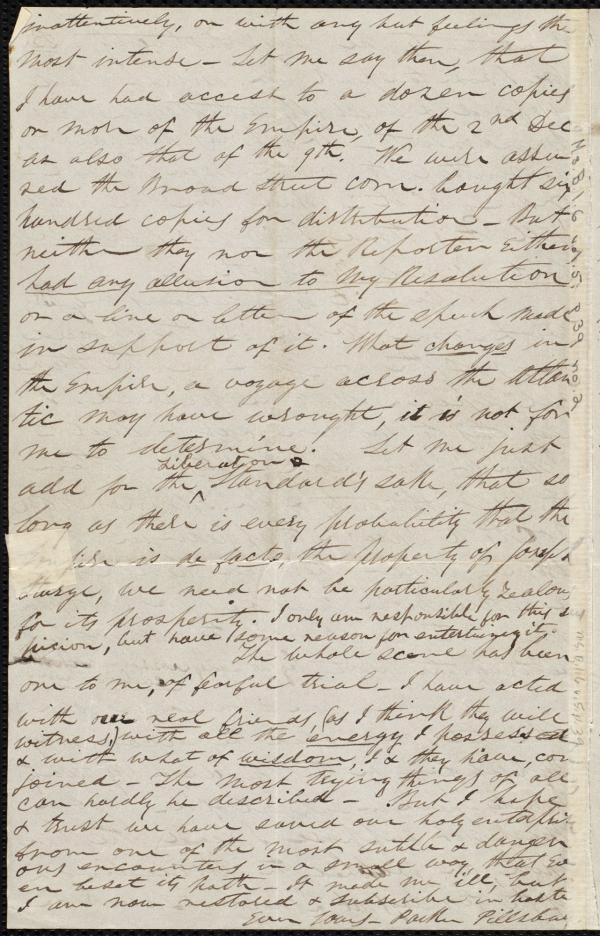 inattentively, or with any but feelings the
most intense – Let me say then, that
I have had access to a dozen copies
or more of the Empire, of the 2nd Dec
as also that of the 9th. We were assu
red the Broad street com. bought six
hundred copies for distribution – But
neither they nor the Reporter either
had any allusion to my Resolution
or a line or letter of the speech made
in support of it. What changes in
the Empire, a voyage across the Atlan
tic may have wrought, it is not for
me to determine. Let me just
Liberator &
add for the ^ Standard's sake, that so
long as there is every probability that the
is de facto, the property of Joseph
Sturge, we need not be particularly zealous
for its prosperity. I only am responsible for this s
picion, but have some reason for entertaining it.
The whole scene has been
one to me, of fearful trial – I have acted
with our real friends, (as I think they will
witness,) with all the energy I possessed
& with what of wisdom, I & they have, con
joined – The most trying things of all
can hardly be described – But I hope
& trust we have saved our holy enterprise
from one of the most subtle & danger
ous encounters in a small way that ev
er beset its path – It made me ill, but
I am now restored & subscribe in haste
Ever Yours – Parker Pillsbury